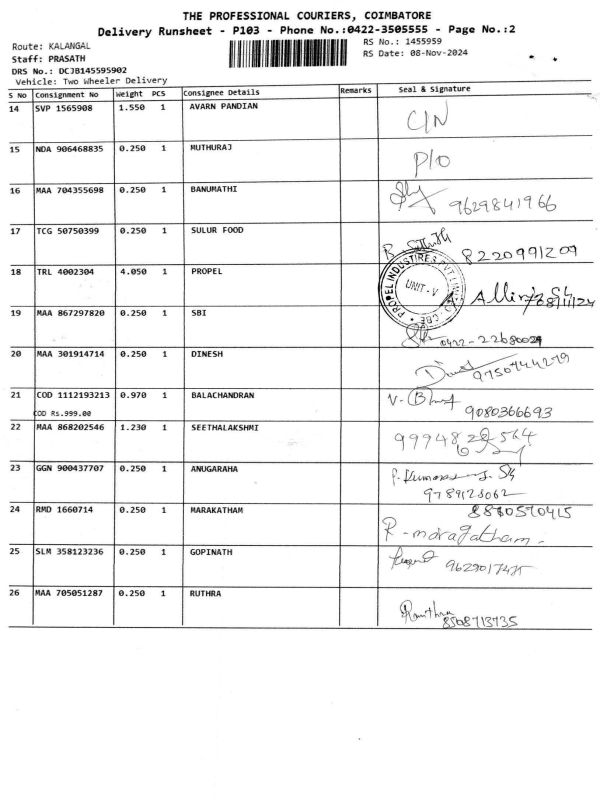 THE PROFESSIONAL COURIERS, COIMBATORE
Delivery Runsheet - P103 - Phone No.:0422-3505555 - Page No.:2
Route: KALANGAL
RS No.: 1455959
Staff: PRASATH
RS Date: 08-Nov-2024
DRS No.: DCJB145595902
Vehicle: Two Wheeler Delivery
S No Consignment No Weight PCS Consignee Details Remarks Seal & Signature
14 SVP 1565908 1.550 1 AVARN PANDIAN C/N
15 NDA 906468835 0.250 1 MUTHURAJ P/O
16 MAA 704355698 0.250 1 BANUMATHI 9629841966
17 TCG 50750399 0.250 1 SULUR FOOD 8220991209
18 TRL 4002304 4.050 1 PROPEL
PROPEL INDUSTIRES PVT LIMITED CBE
UNIT - V
19 MAA 867297820 0.250 1 SBI
20 MAA 301914714 0.250 1 DINESH 9750744279
21 COD 1112193213 0.970 1 BALACHANDRAN 9080366693
COD Rs.999.00
22 MAA 868202546 1.230 1 SEETHALAKSHMI
23 GGN 900437707 0.250 1 ANUGARAHA
9789128062
24 RMD 1660714 0.250 1 MARAKATHAM
R - maragatham -
25 SLM 358123236 0.250 1 GOPINATH
26 MAA 705051287 0.250 1 RUTHRA
8508713735